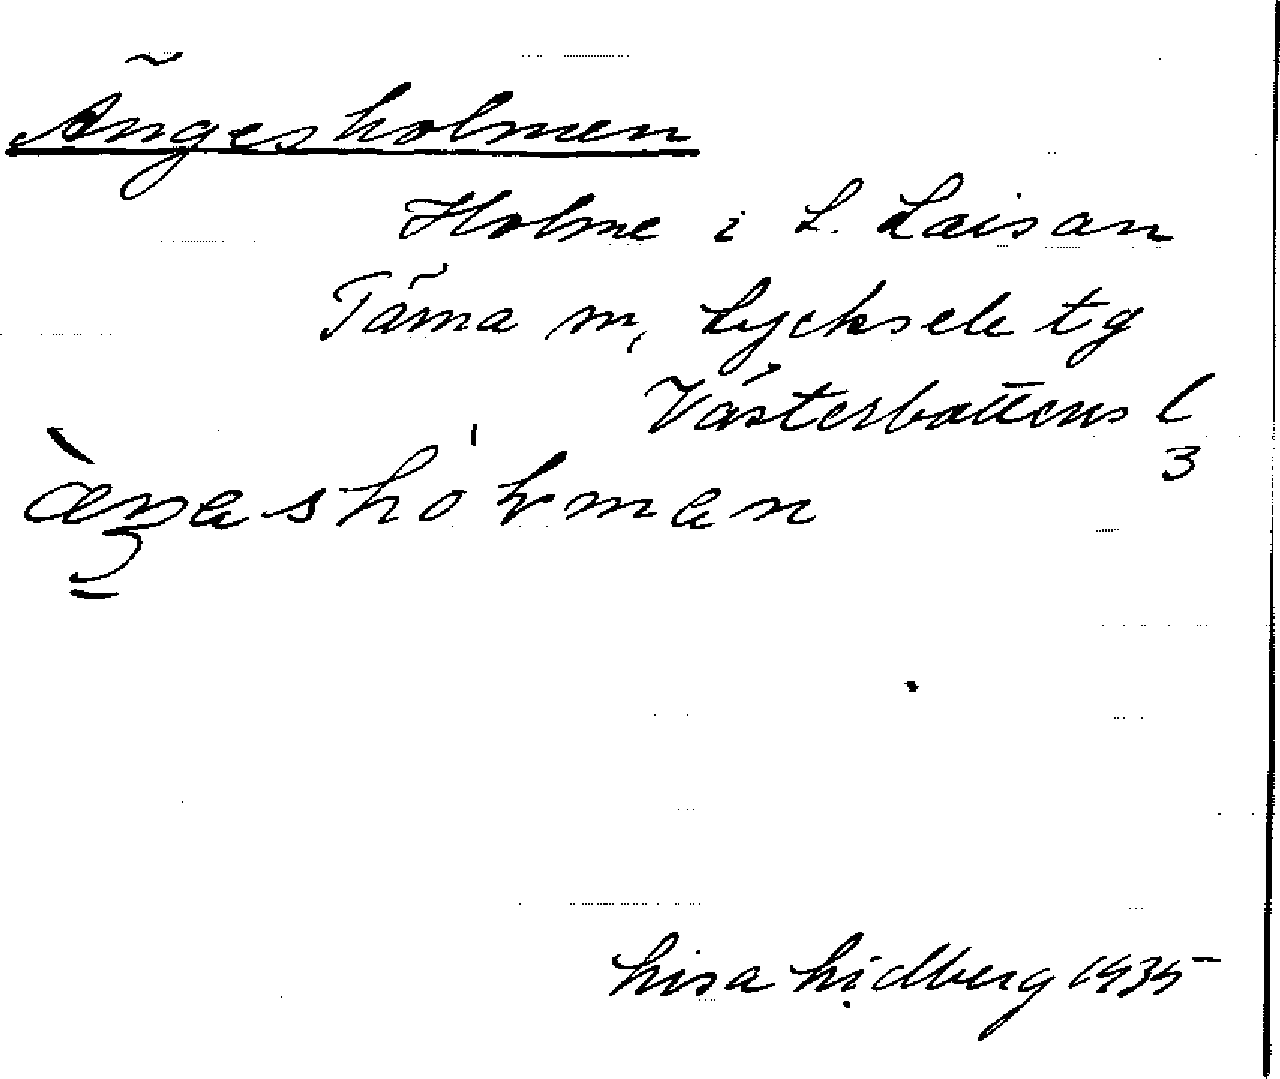 Ängesholmen
Holme i L. Laisan
Tärna sn, Lycksele tg
Västerbottens l
3
Lisa Lidberg 1935